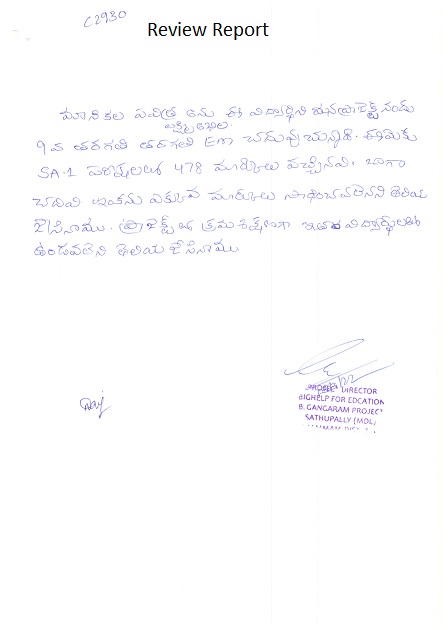 C2930
Review Report
మానికల పవిత్ర అను ఈ విద్యార్థిని మన ప్రాజెక్ట్ నందు
9వ తరగతి తరగతి EM చదువుచున్నది. ఈమెకు
SA-1 పరీక్షలలో 478 మార్కులు వచ్చినవి. బాగా
చదివి ఇంకను ఎక్కువ మార్కులు సాధించవలెనని తెలియ
జేసినాము. ప్రాజెక్ట్ క్రమశిక్షణగా ఇతర విద్యార్థులతో
ఉండవలెనని తెలియజేసినాము
DIRECTOR
BIGHELP FOR EDCATION
B. GANGARAM PROJECT
SATHUPALLY (MDL)